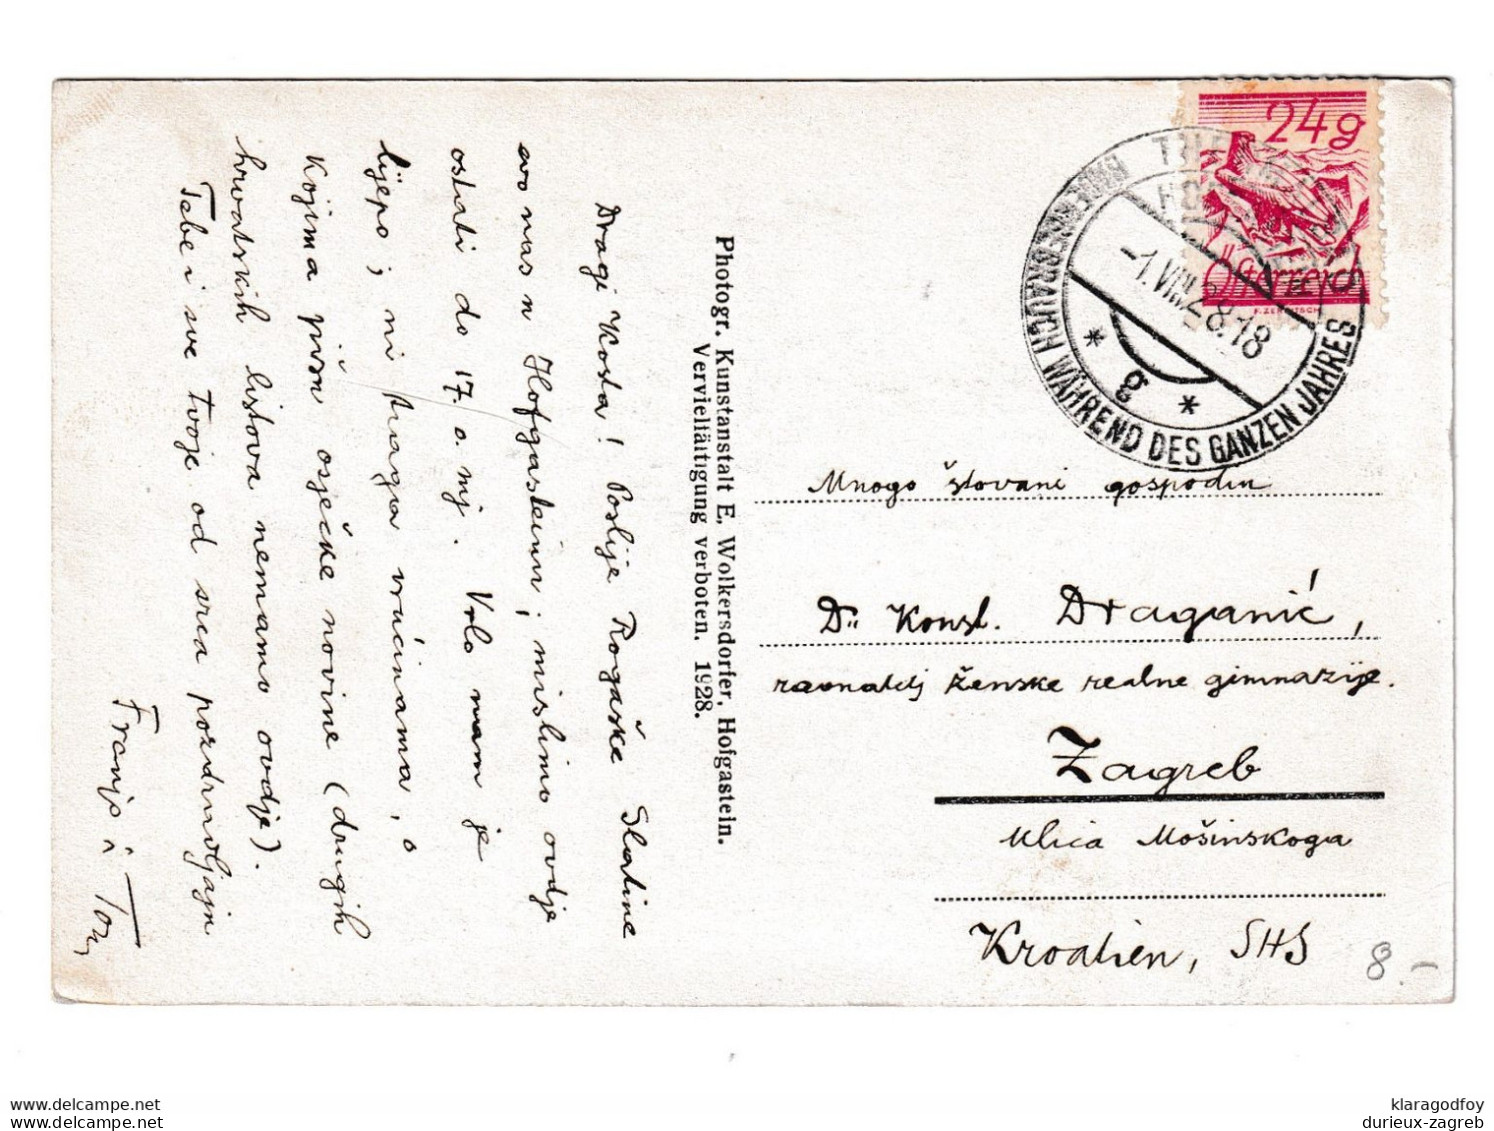 Dragi Kosta! Poslije Rogaške Slatine
evo nas u Hofgasteinu; mislimo ovdje
ostati do 17. o. mj. Vrlo nam je
lijepo; ni traga vrućinama, o
kojima pišu osječke novine (drugih
hrvatskih listova nemamo ovdje).
Tebe i sve Tvoje od srca pozdravljaju
Franjo i
Photogr. Kunstanstalt E. Wolkersdorfer, Hofgastein.
Vervielfältigung verboten. 1928.
24g
Österreich
BADEGEBRAUCH WÄHREND DES GANZEN JAHRES
-1.VIII.28.18
* g *
Mnogo štovani gospodin
Dr. Konst. Draganić,
ravnatelj ženske realne gimnazije.
Zagreb
Ulica Mošinskoga
Kroatien, SHS
8.-
www.delcampe.net
www.delcampe.net
klaragodfoy
durieux-zagreb